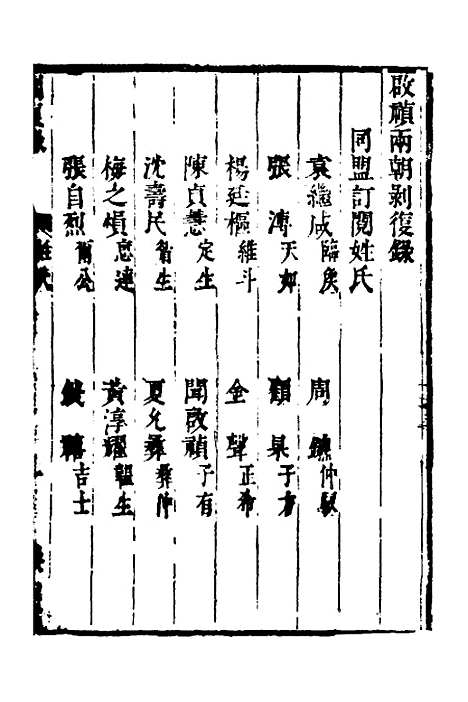 啟禎兩朝剝復錄
同盟訂閱姓氏
袁繼咸 臨矦 周鑣 仲馭
張溥 天如 顧杲 子方
楊廷樞 維斗 金聲 正希
陳貞慧 定生 聞啟禎 子有
沈壽民 眉生 夏允彝 彝仲
梅之熉 惠連 黃淳耀 蘊生
張自烈 爾公 吉士
姓氏